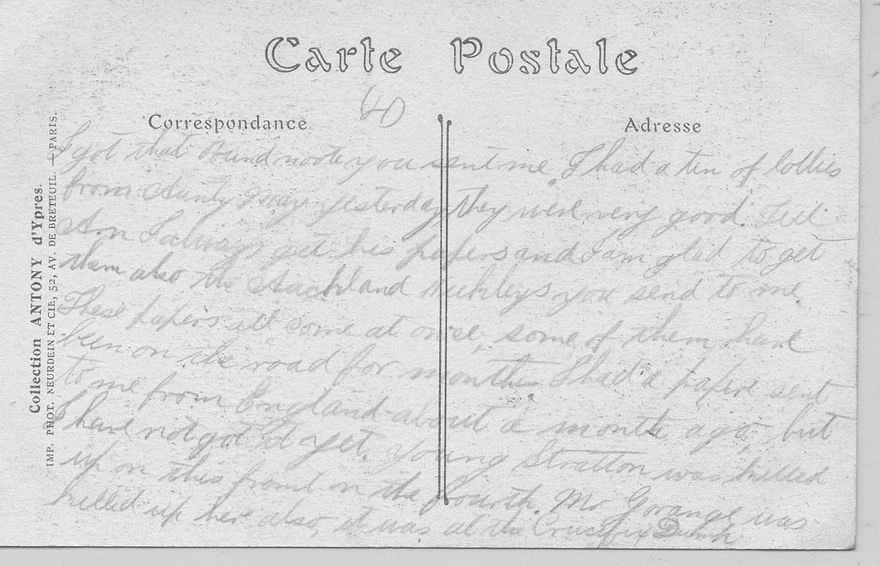 Carte Postale
40
Correspondance
Adresse
I got that Pound note you sent me, I had a tin of lollies
from Aunty May yesterday they were very good. Tell
I always get his papers and I am glad to get
them also the Auckland Weeklys you send to me.
These papers all come at once, some of them have
been on the road for months. I had a papers sent
to me from England about a month ago but
I have not got it yet. Young Stratton was killed
up on this front on the fourth. Mr was
killed up here also, it was at the Crucifix
Collection ANTONY d'Ypres.
IMP. PHOT. NEURDEIN ET CIE, 52, AV. DE BRETEUIL. — PARIS.